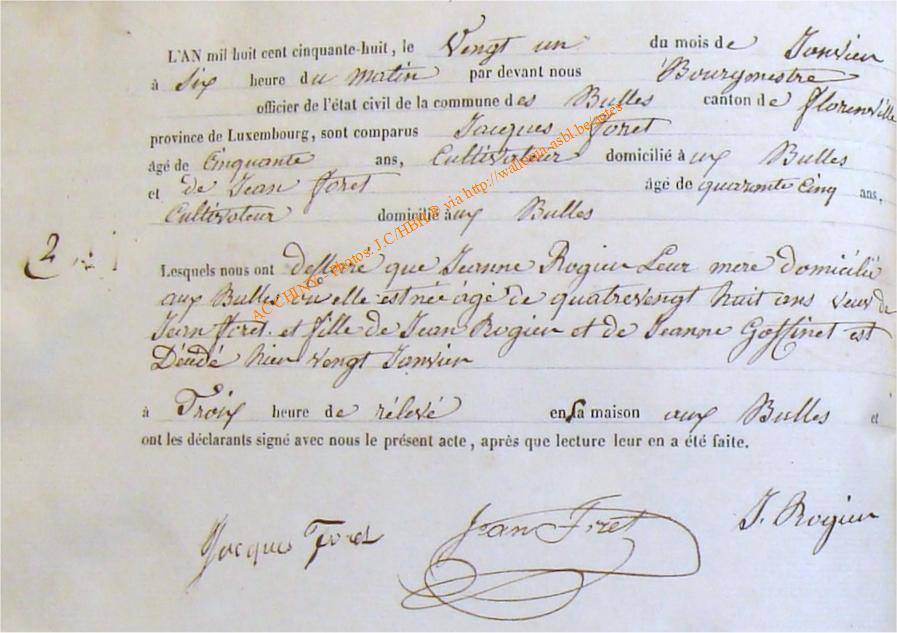 L'AN mil huit cent cinquante-huit, le Vengt un du mois de Janvier
à Six heure du matin par devant nous Bourgmestre
officier de l'état civil de la commune des Bulles canton de florenville
province de Luxembourg, sont comparus Jacques foret
âgé de Cinquante ans, Cultivateur domicilié aux Bulles
et de Jean foret âgé de quarante Cinq ans,
Cultivateur domicilié aux Bulles
2
Lesquels nous ont declaré que Jeanne Rogier Leur mere domicilié
aux Bulles ou elle est née âgé de quatrevengt huit ans veuve de
Jean foret et fille de Jean Rogier et de Jeanne Goffinet est
Décédé hier vengt Janvier
à Troix heure de rélevé en sa maison aux Bulles et
ont les déclarants signé avec nous le présent acte, après que lecture leur en a été faite.
Jacques Foret Jean Foret J. Rogier
ACCHINY - Photos: J.C/HBH © via http://wallonia-asbl.be/actes